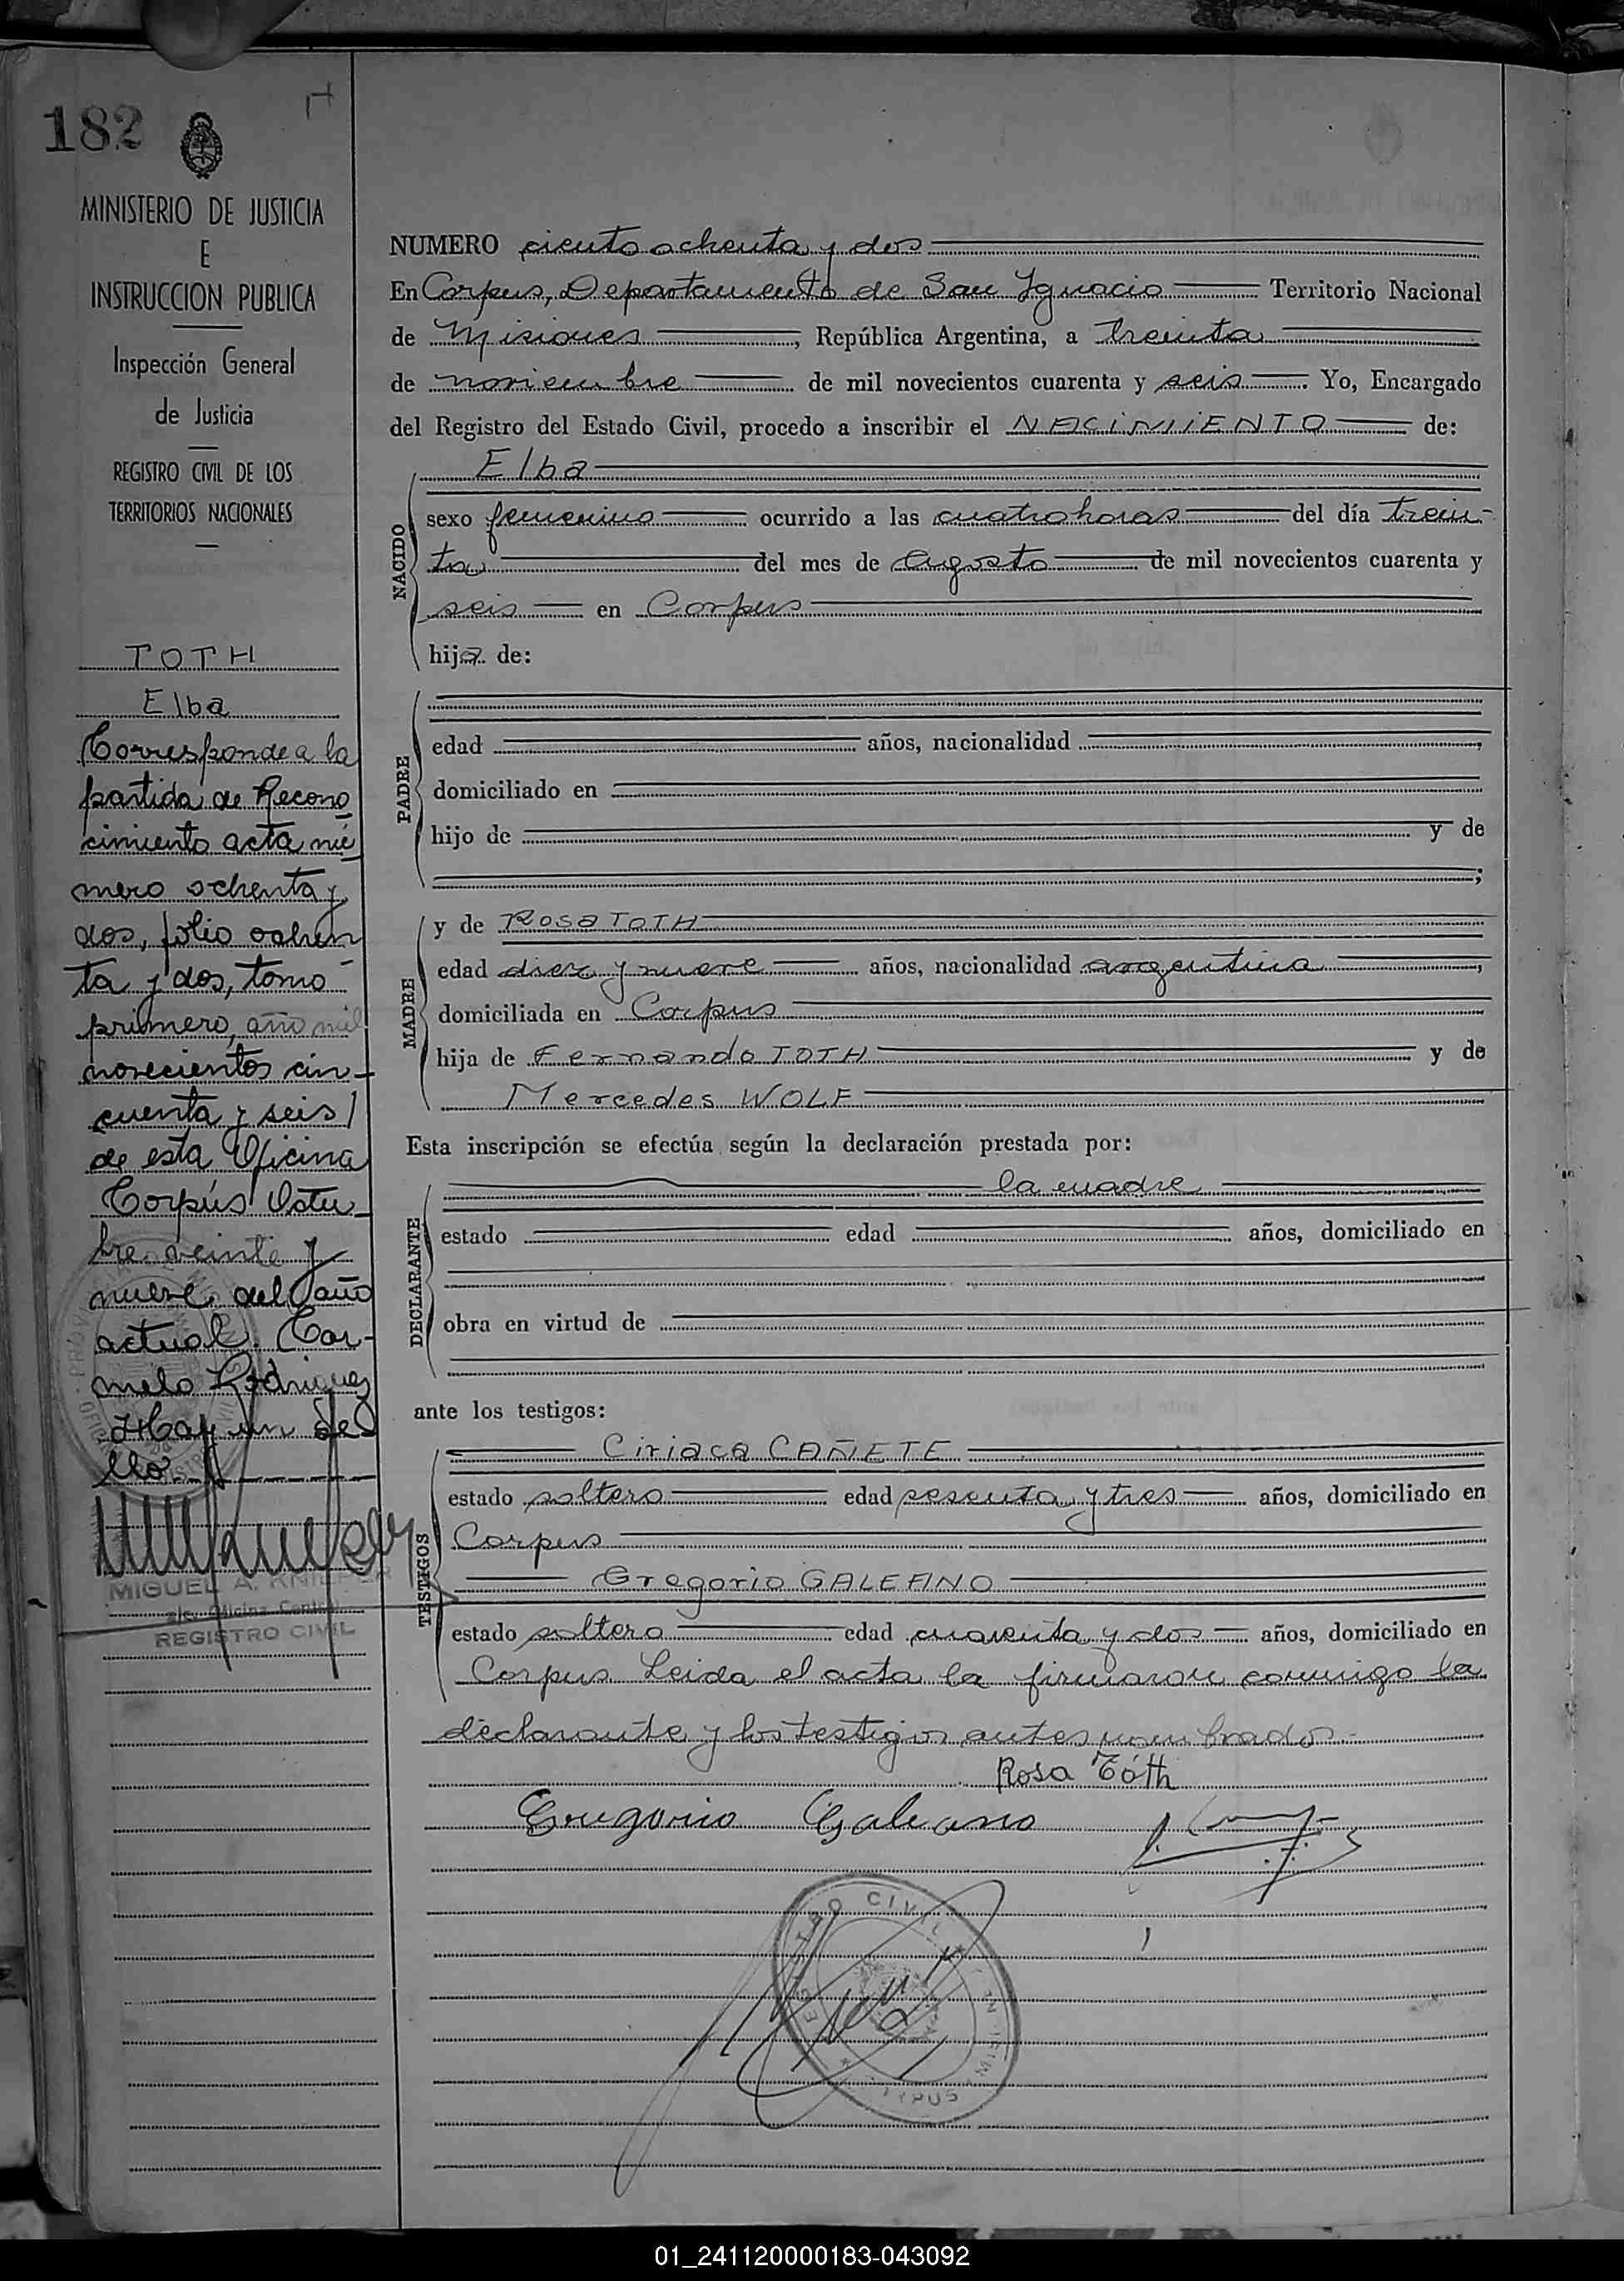 182
MINISTERIO DE JUSTICIA
E
INSTRUCCION PUBLICA
Inspección General
de Justicia
REGISTRO CIVIL DE LOS
TERRITORIOS NACIONALES
TOTH
Elba
Corresponde a la
partida de Recono
cimiento acta nú
mero ochenta y
dos, folio ochen
ta y dos, tomo
primero, año mil
novecientos cin-
cuenta y seis
de esta Oficina
Corpús Octu-
bre veinte y
nueve del año
actual. Car-
melo Rodriguez
Hay un se
llo.
MIGUEL A. KNIEPER
Oficina Central
REGISTRO CIVIL
NUMERO ciento ochenta y dos
En Corpus, Departamento de San Ignacio Territorio Nacional
de Misiones, República Argentina, a treinta
de noviembre de mil novecientos cuarenta y seis. Yo, Encargado
del Registro del Estado Civil, procedo a inscribir el NACIMIENTO de:
NACIDO
Elba
sexo femenino ocurrido a las cuatro horas del día trein-
ta del mes de Agosto de mil novecientos cuarenta y
seis en Corpus
hija de:
PADRE
edad años, nacionalidad
domiciliado en
hijo de y de
;
MADRE
y de Rosa TOTH
edad diez y nueve años, nacionalidad argentina,
domiciliada en Corpus
hija de Fernando TOTH y de
Mercedes WOLF
Esta inscripción se efectúa según la declaración prestada por:
DECLARANTE
la madre
estado edad años, domiciliado en
obra en virtud de
ante los testigos:
TESTIGOS
Ciriaca CAÑETE
estado soltero edad sesenta y tres años, domiciliado en
Corpus
Gregorio GALEANO
estado soltero edad cuarenta y dos años, domiciliado en
Corpus. Leida el acta la firmaron conmigo la
declarante y los testigos antes nombrados.
Rosa Tóth
Gregorio Galeano
REGISTRO CIVIL
CORPUS
01_241120000183-043092